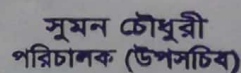 সুমন চৌধুরী
পরিচালক (উপসচিব)